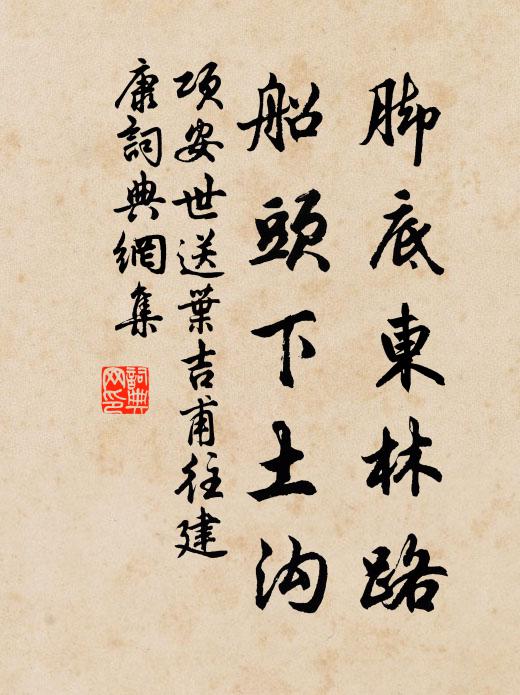 脚底東林路
船頭下土沟
项安世送葉吉甫往建
康詞典網集
詞典
网印